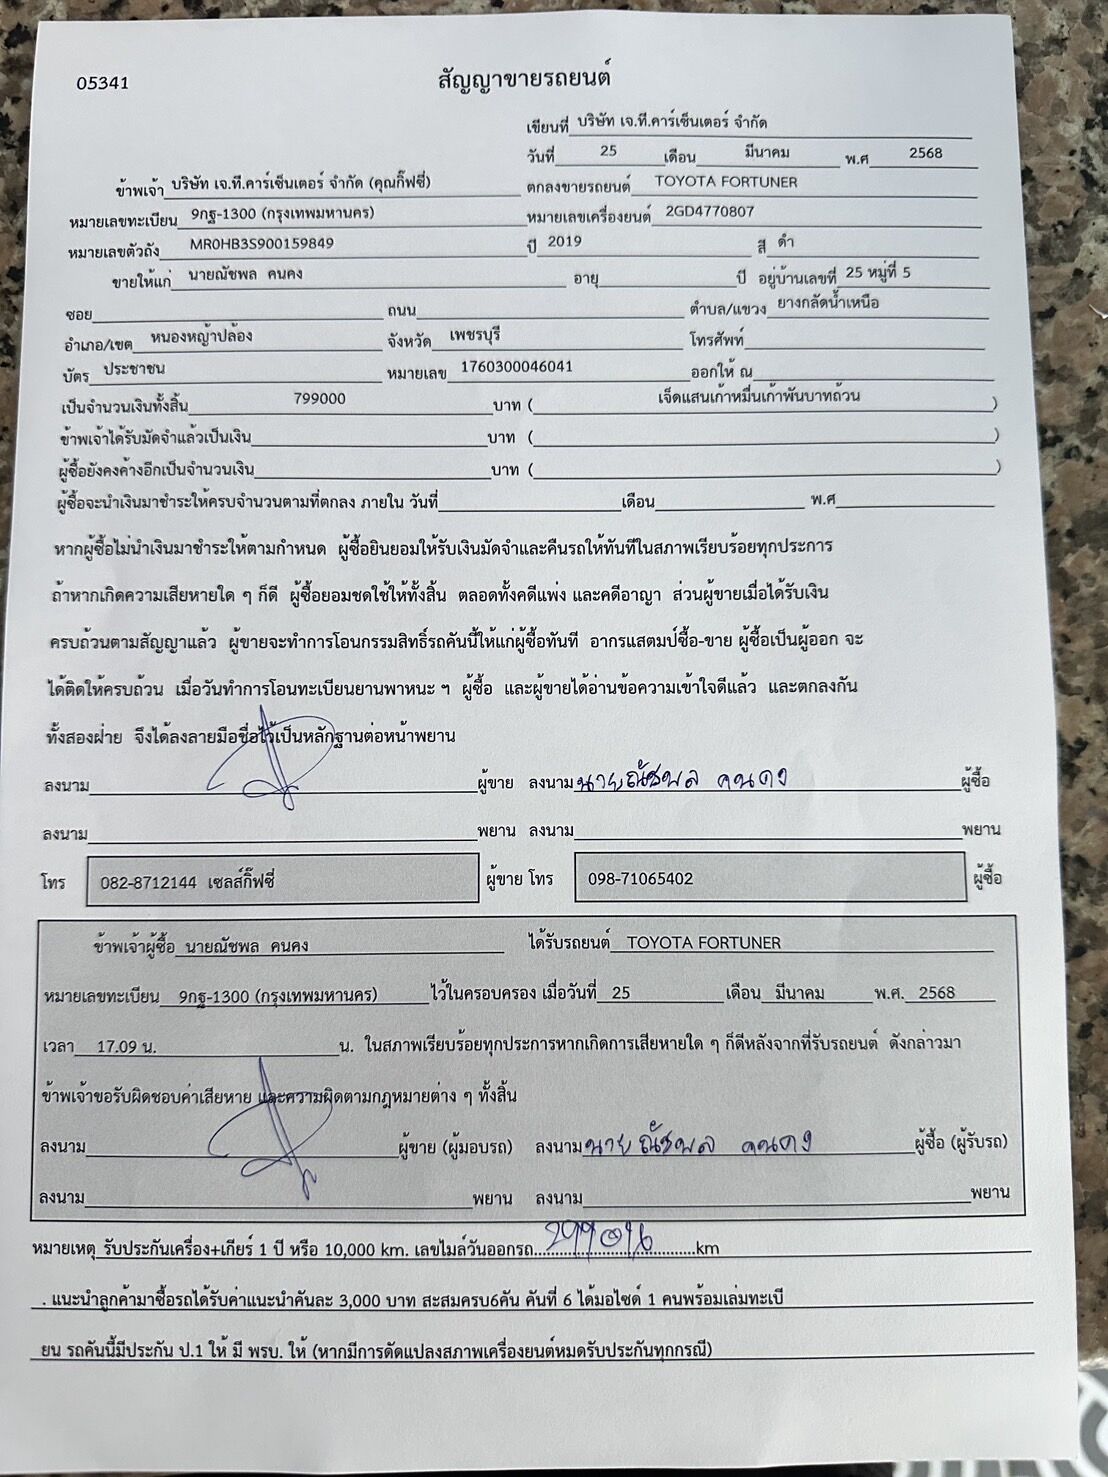 05341
สัญญาขายรถยนต์
เขียนที่ บริษัท เจ.ที.คาร์เซ็นเตอร์ จำกัด
วันที่ 25 เดือน มีนาคม พ.ศ 2568
ข้าพเจ้า บริษัท เจ.ที.คาร์เซ็นเตอร์ จำกัด (คุณกิ๊ฟซี่) ตกลงขายรถยนต์ TOYOTA FORTUNER
หมายเลขทะเบียน 9กฐ-1300 (กรุงเทพมหานคร) หมายเลขเครื่องยนต์ 2GD4770807
หมายเลขตัวถัง MR0HB3S900159849 ปี 2019 สี ดำ
ขายให้แก่ นายณัชพล คนคง อายุ ปี อยู่บ้านเลขที่ 25 หมู่ที่ 5
ซอย ถนน ตำบล/แขวง ยางกลัดน้ำเหนือ
อำเภอ/เขต หนองหญ้าปล้อง จังหวัด เพชรบุรี โทรศัพท์
บัตร ประชาชน หมายเลข 1760300046041 ออกให้ ณ
เป็นจำนวนเงินทั้งสิ้น 799000 บาท ( เจ็ดแสนเก้าหมื่นเก้าพันบาทถ้วน )
ข้าพเจ้าได้รับมัดจำแล้วเป็นเงิน บาท ( )
ผู้ซื้อยังคงค้างอีกเป็นจำนวนเงิน บาท ( )
ผู้ซื้อจะนำเงินมาชำระให้ครบจำนวนตามที่ตกลง ภายใน วันที่ เดือน พ.ศ
หากผู้ซื้อไม่นำเงินมาชำระให้ตามกำหนด ผู้ซื้อยินยอมให้รับเงินมัดจำและคืนรถให้ทันทีในสภาพเรียบร้อยทุกประการ
ถ้าหากเกิดความเสียหายใด ๆ ก็ดี ผู้ซื้อยอมชดใช้ให้ทั้งสิ้น ตลอดทั้งคดีแพ่ง และคดีอาญา ส่วนผู้ขายเมื่อได้รับเงิน
ครบถ้วนตามสัญญาแล้ว ผู้ขายจะทำการโอนกรรมสิทธิ์รถคันนี้ให้แก่ผู้ซื้อทันที อากรแสตมป์ซื้อ-ขาย ผู้ซื้อเป็นผู้ออก จะ
ได้ติดให้ครบถ้วน เมื่อวันทำการโอนทะเบียนยานพาหนะ ฯ ผู้ซื้อ และผู้ขายได้อ่านข้อความเข้าใจดีแล้ว และตกลงกัน
ทั้งสองฝ่าย จึงได้ลงลายมือชื่อไว้เป็นหลักฐานต่อหน้าพยาน
ลงนาม ผู้ขาย ลงนาม นายณัชพล คนคง ผู้ซื้อ
ลงนาม พยาน ลงนาม พยาน
โทร 082-8712144 เซลส์กิ๊ฟซี่ ผู้ขาย โทร 098-71065402 ผู้ซื้อ
ข้าพเจ้าผู้ซื้อ นายณัชพล คนคง ได้รับรถยนต์ TOYOTA FORTUNER
หมายเลขทะเบียน 9กฐ-1300 (กรุงเทพมหานคร) ไว้ในครอบครอง เมื่อวันที่ 25 เดือน มีนาคม พ.ศ. 2568
เวลา 17.09 น. น. ในสภาพเรียบร้อยทุกประการหากเกิดการเสียหายใด ๆ ก็ดีหลังจากที่รับรถยนต์ ดังกล่าวมา
ข้าพเจ้าขอรับผิดชอบค่าเสียหาย และความผิดตามกฎหมายต่าง ๆ ทั้งสิ้น
ลงนาม ผู้ขาย (ผู้มอบรถ) ลงนาม นายณัชพล คนคง ผู้ซื้อ (ผู้รับรถ)
ลงนาม พยาน ลงนาม พยาน
หมายเหตุ รับประกันเครื่อง+เกียร์ 1 ปี หรือ 10,000 km. เลขไมล์วันออกรถ km
. แนะนำลูกค้ามาซื้อรถได้รับค่าแนะนำคันละ 3,000 บาท สะสมครบ6คัน คันที่ 6 ได้มอไซด์ 1 คนพร้อมเล่มทะเบี
ยน รถคันนี้มีประกัน ป.1 ให้ มี พรบ. ให้ (หากมีการดัดแปลงสภาพเครื่องยนต์หมดรับประกันทุกกรณี)